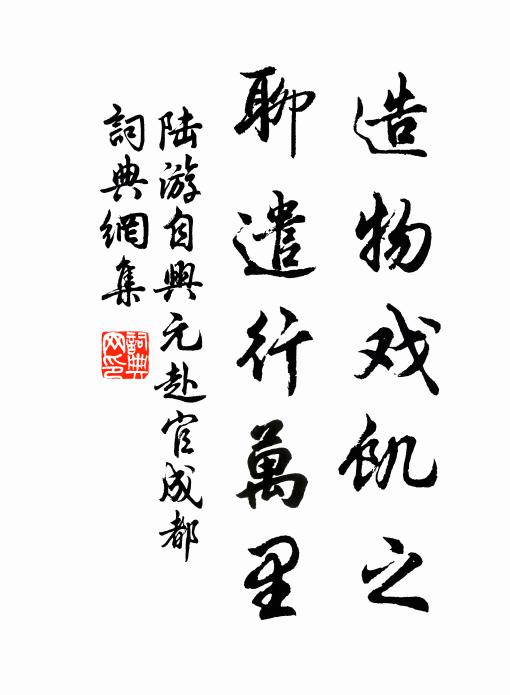 造物戏飢之
聊遣行萬里
陆游自興元赴官成都
詞典網集
詞典
网印